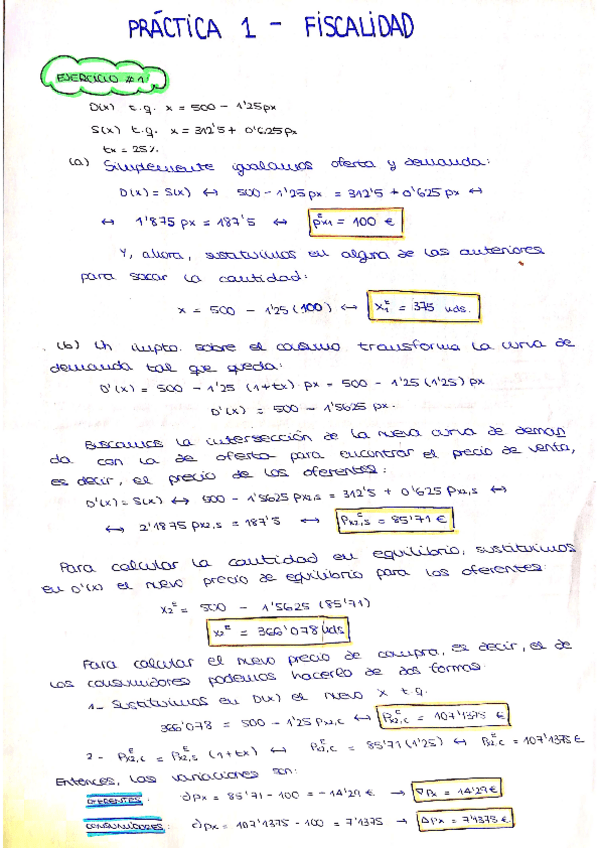 PRÁCTICA 1 - FISCALIDAD
EJERCICIO #1:
D(x) t.q. x = 500 - 1'25px
S(x) t.q. x = 312'5 + 0'625px
tx = 25%
(a) Simplemente igualamos oferta y demanda:
D(x) = S(x) ↔ 500 - 1'25px = 312'5 + 0'625px ↔
↔ 1'875px = 187'5 ↔ pᴱx1 = 100 €
Y, ahora, sustituimos en alguna de las anteriores
para sacar la cantidad:
x = 500 - 1'25(100) ↔ x₁ᴱ = 375 uds.
(b) Un impto. sobre el consumo transforma la curva de
demanda tal que queda:
D'(x) = 500 - 1'25 (1+tx) px = 500 - 1'25 (1'25) px
D'(x) = 500 - 1'5625 px.
Buscamos la intersección de la nueva curva de deman
da con la de oferta para encontrar el precio de venta,
es decir, el precio de los oferentes:
D'(x) = S(x) ↔ 500 - 1'5625 px2,s = 312'5 + 0'625 px2,s ↔
↔ 2'1875 px2,s = 187'5 ↔ pᴱx2,s = 85'71 €
Para calcular la cantidad en equilibrio, sustituimos
en D'(x) el nuevo precio de equilibrio para los oferentes:
x₂ᴱ = 500 - 1'5625 (85'71)
x₂ᴱ = 366'078 uds
Para calcular el nuevo precio de compra, es decir, el de
los consumidores podemos hacerlo de dos formas:
1- Sustituimos en D(x) el nuevo x t.q.
366'078 = 500 - 1'25 px2,c ↔ pᴱx2,c = 107'1375 €
2- pᴱx2,c = pᴱx2,s (1+tx) ↔ pᴱx2,c = 85'71(1'25) ↔ pᴱx2,c = 107'1375 €
Entonces, las variaciones son:
OFERENTES: ∂px = 85'71 - 100 = -14'29 € → ∇px = 14'29 €
CONSUMIDORES: ∂px = 107'1375 - 100 = 7'1375 → Δpx = 7'1375 €